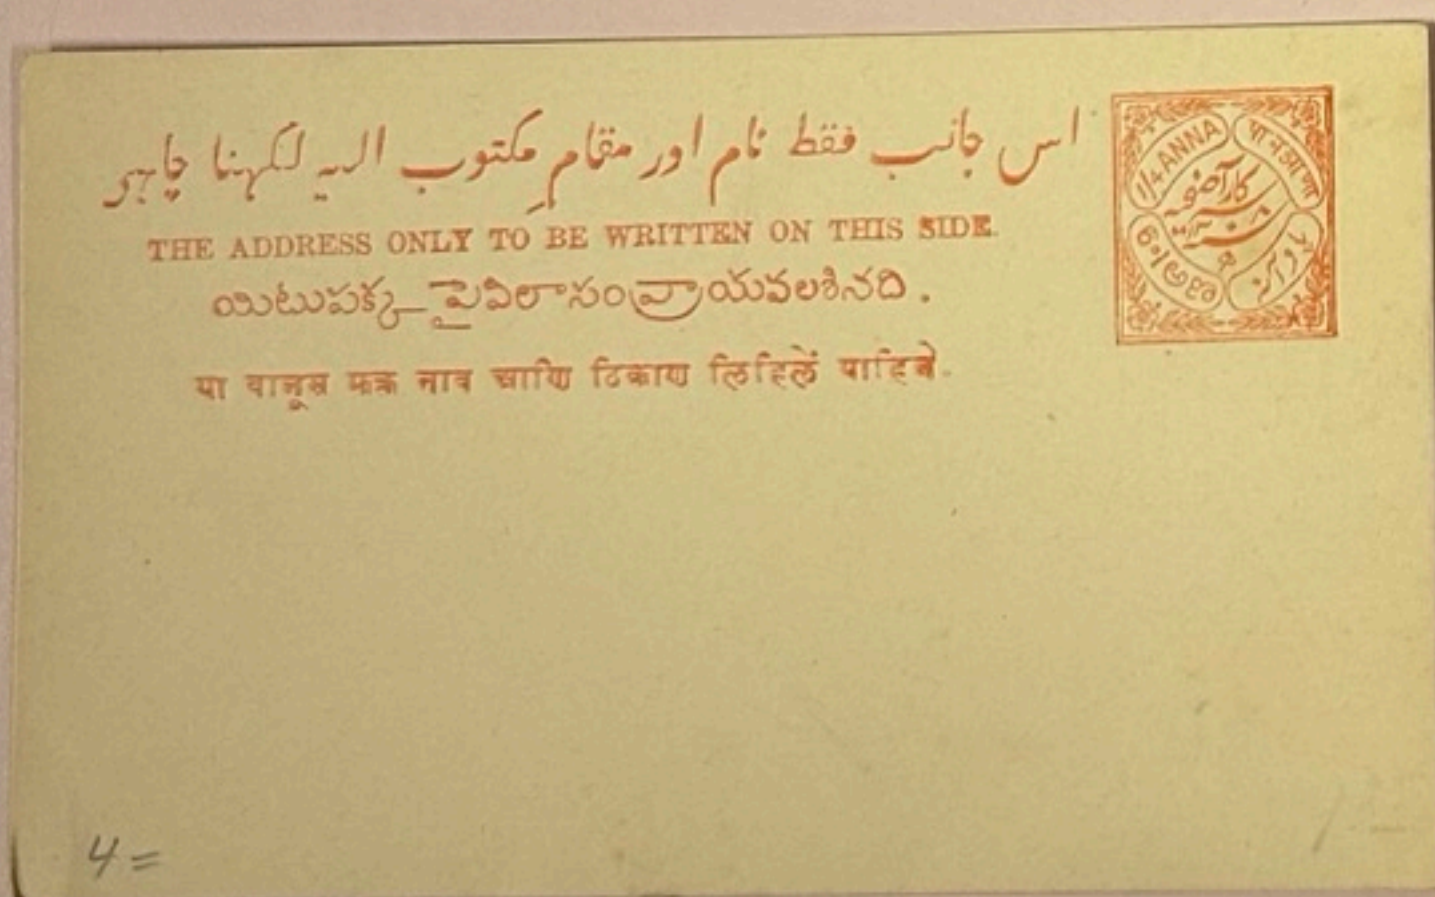 اس جانب فقط نام اور مقامِ مکتوب الیہ لکہنا چاہیے
THE ADDRESS ONLY TO BE WRITTEN ON THIS SIDE.
యిటుపక్క పైవిలాసంవ్రాయవలశినది.
या बाजूस फक्त नाव आणि ठिकाण लिहिलें पाहिजे.
1/4 ANNA
पाव आणा
4 =